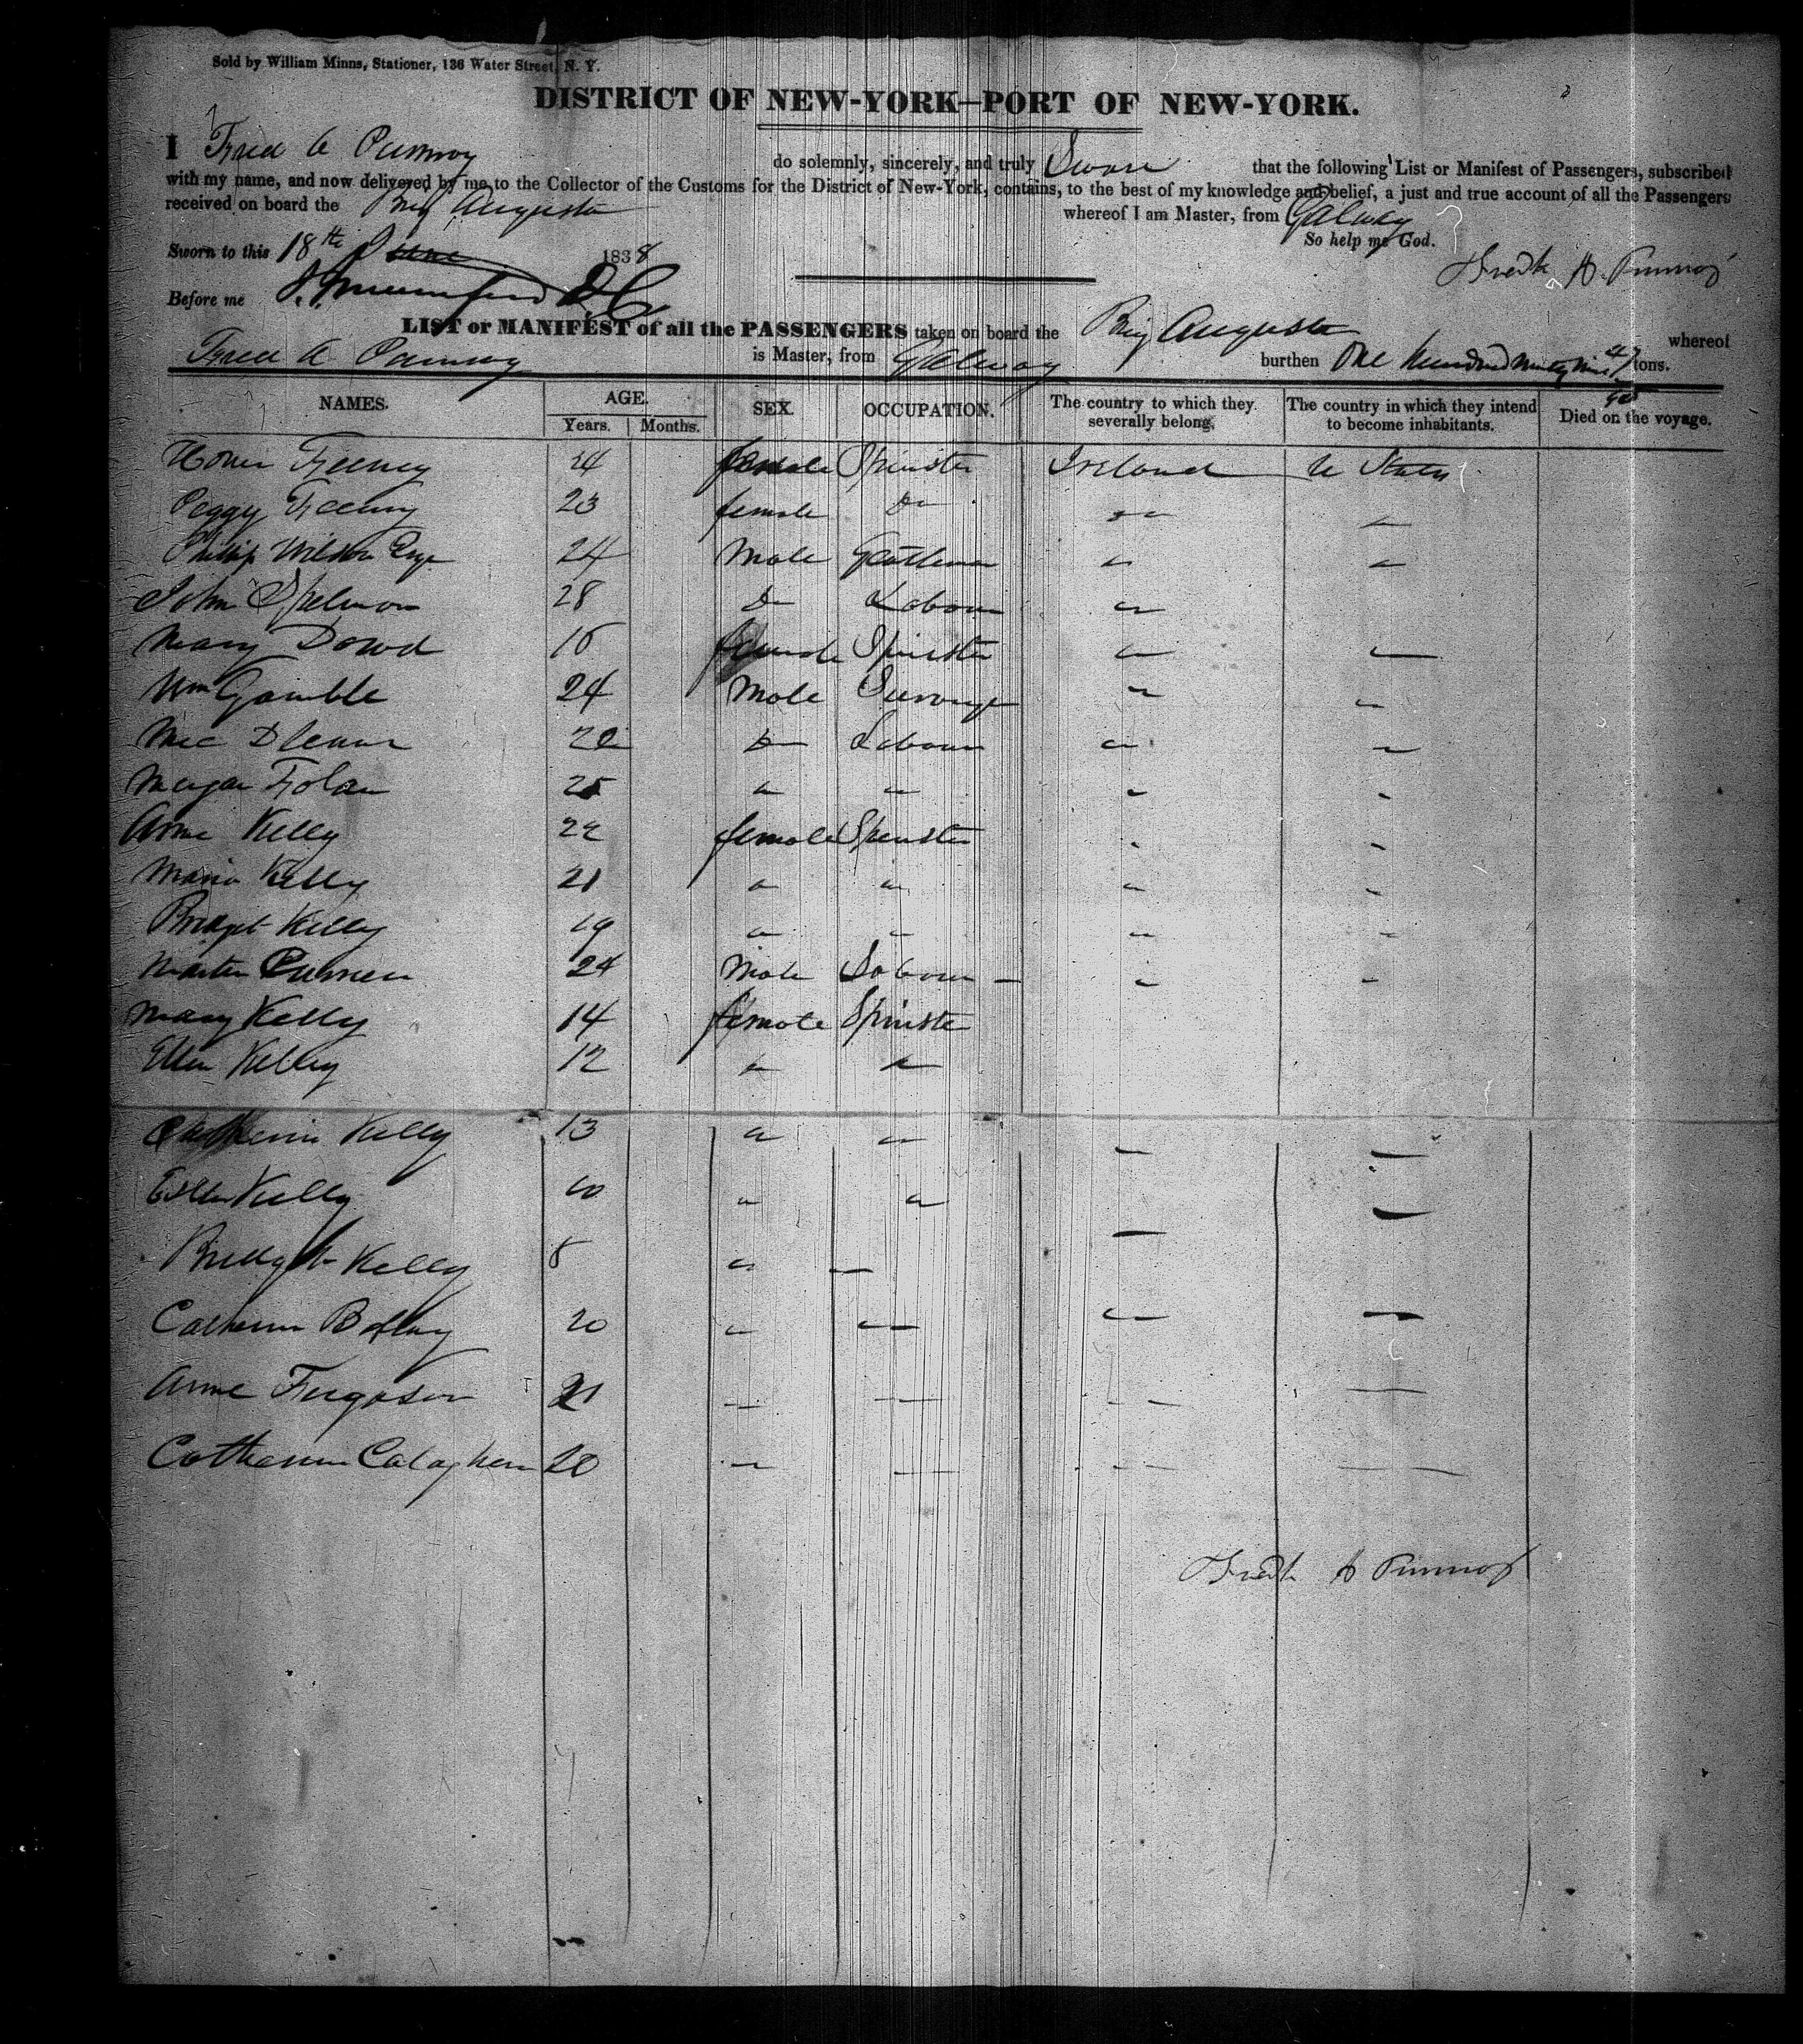 Sold by William Minns, Stationer, 136 Water Street, N. Y.
DISTRICT OF NEW-YORK—PORT OF NEW-YORK.
I Fred A do solemnly, sincerely, and truly Swear that the following List or Manifest of Passengers, subscribed
with my name, and now delivered by me to the Collector of the Customs for the District of New-York, contains, to the best of my knowledge and belief, a just and true account of all the Passengers
received on board the Brig Augusta whereof I am Master, from Galway
So help me God.
Sworn to this 18th June 1838
Fredk A.
Before me D.C.
LIST or MANIFEST of all the PASSENGERS taken on board the Brig Augusta whereof
Fred A is Master, from Galway burthen One hundred ninety nine 47 tons.
NAMES. AGE. SEX. OCCUPATION. The country to which they severally belong. The country in which they intend to become inhabitants. Died on the voyage.
Years. Months.
Feeney 24 female Spinster Ireland U States
Peggy Feeney 23 female Do
Phillip Wilson Esqr 24 Male Gentleman
John Spelman 28 Do Labour
Mary Dowd 16 female Spinster
Wm Gamble 24 Male
22 Do Labour
Folan 25
Anne Kelly 22 female Spinster
Maria Kelly 21
Bridget Kelly 19
Martin 24 Male Labour
Mary Kelly 14 female Spinster
Ellen Kelly 12
Catherin Kelly 13
Kelly 10
Bridget Kelly 8
Catherin 20
Anne Ferguson 21
Catherin Calaghan 20
Fredk A